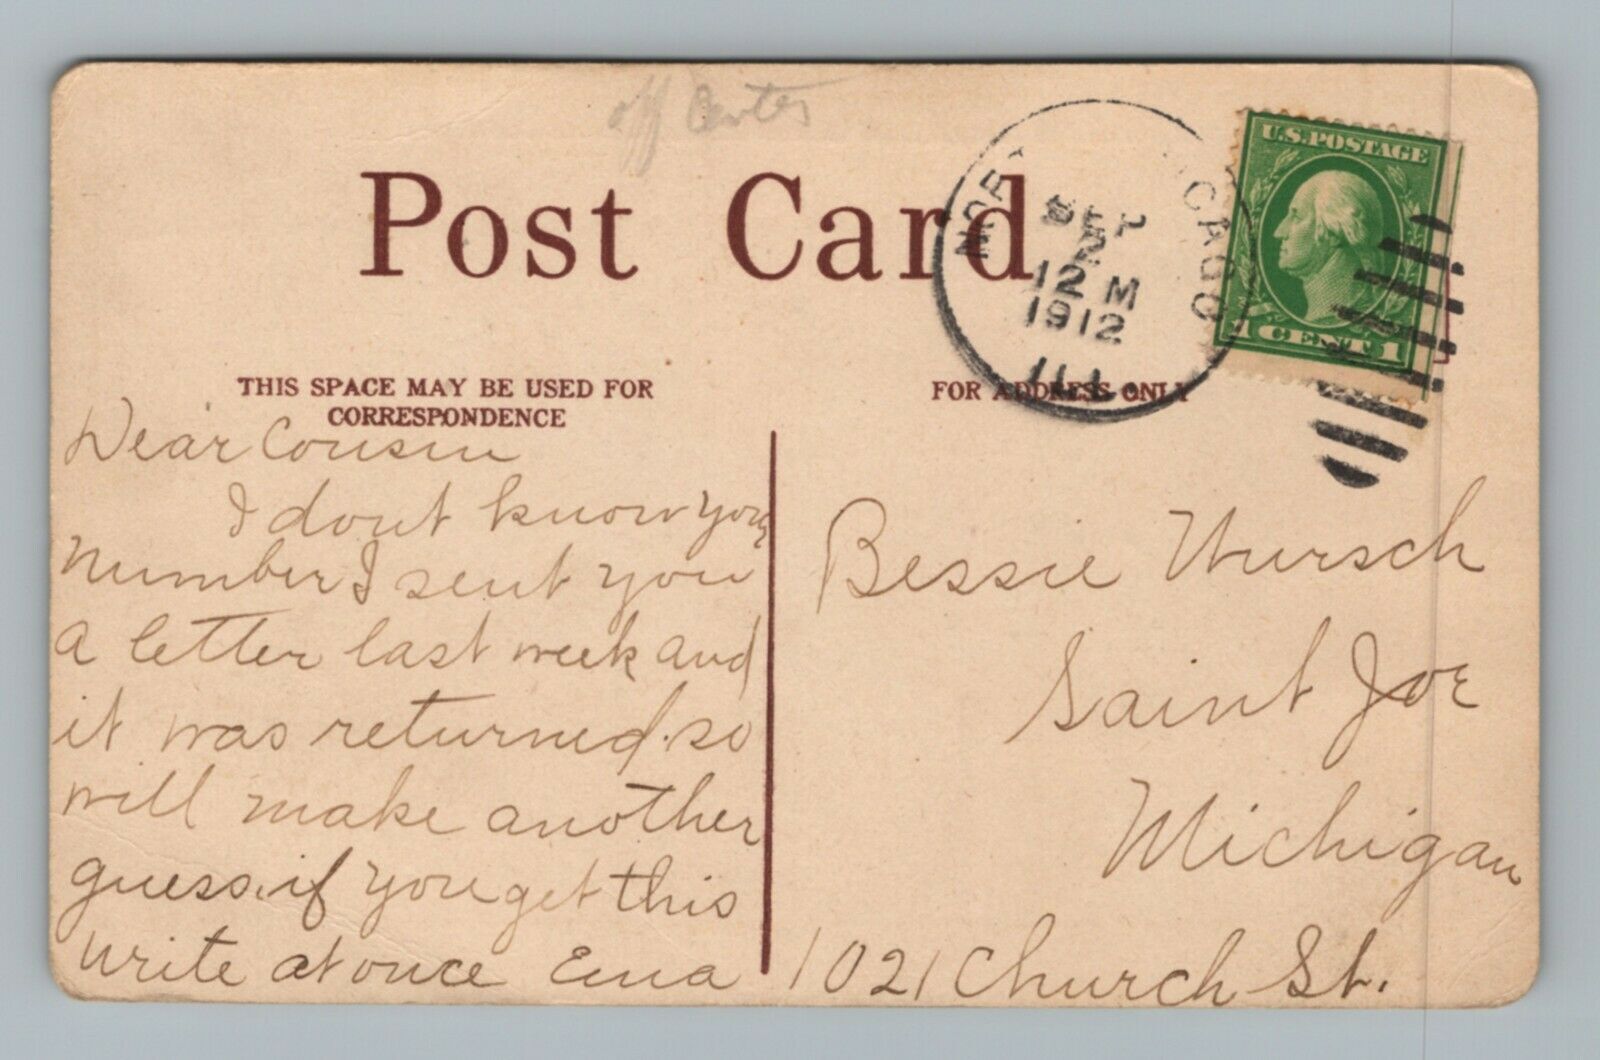 off Center
Post Card
CAGO
SEP
2
12 M
1912
ILL.
U.S. POSTAGE
1 CENT 1
THIS SPACE MAY BE USED FOR
CORRESPONDENCE
FOR ADDRESS ONLY
Dear Cousin
I dont know your
number I sent you
a letter last week and
it was returned. so
will make another
guess. if you get this
write at once Ema
Bessie Wursch
Saint Joe
Michigan
1021 Church St.